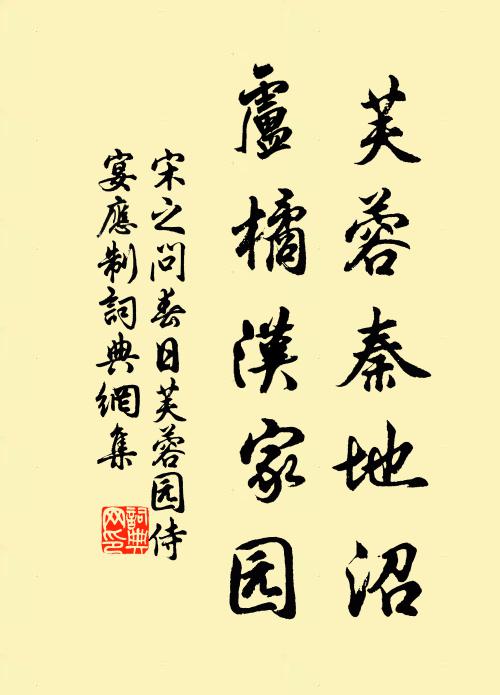 芙蓉秦地沼
盧橘漢家园
宋之问春日芙蓉园侍
宴應制詞典網集
詞典
网印